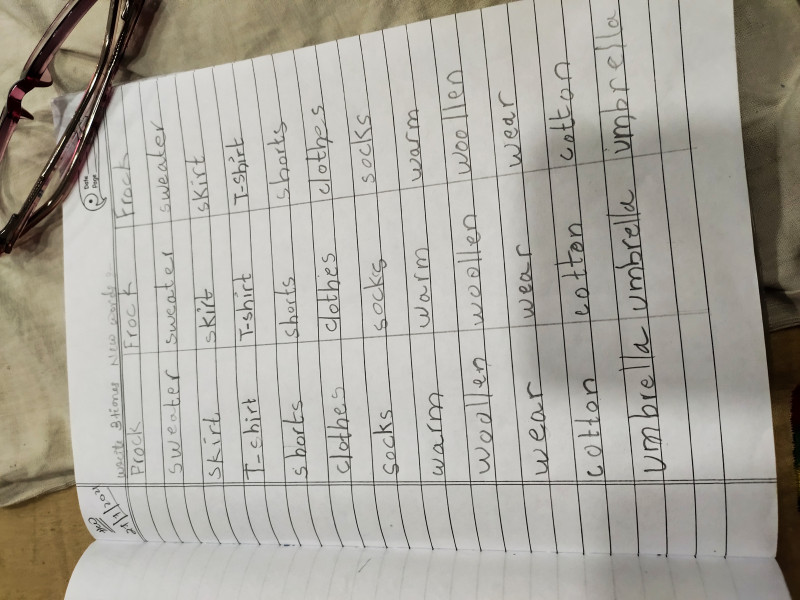 Date
Page
Write 3 times New words
Frock Frock Frock
sweater sweater sweater
skirt skirt skirt
T-shirt T-shirt T-shirt
shorts shorts shorts
clothes clothes clothes
socks socks socks
warm warm warm
woollen woollen woollen
wear wear wear
cotton cotton cotton
umbrella umbrella umbrella